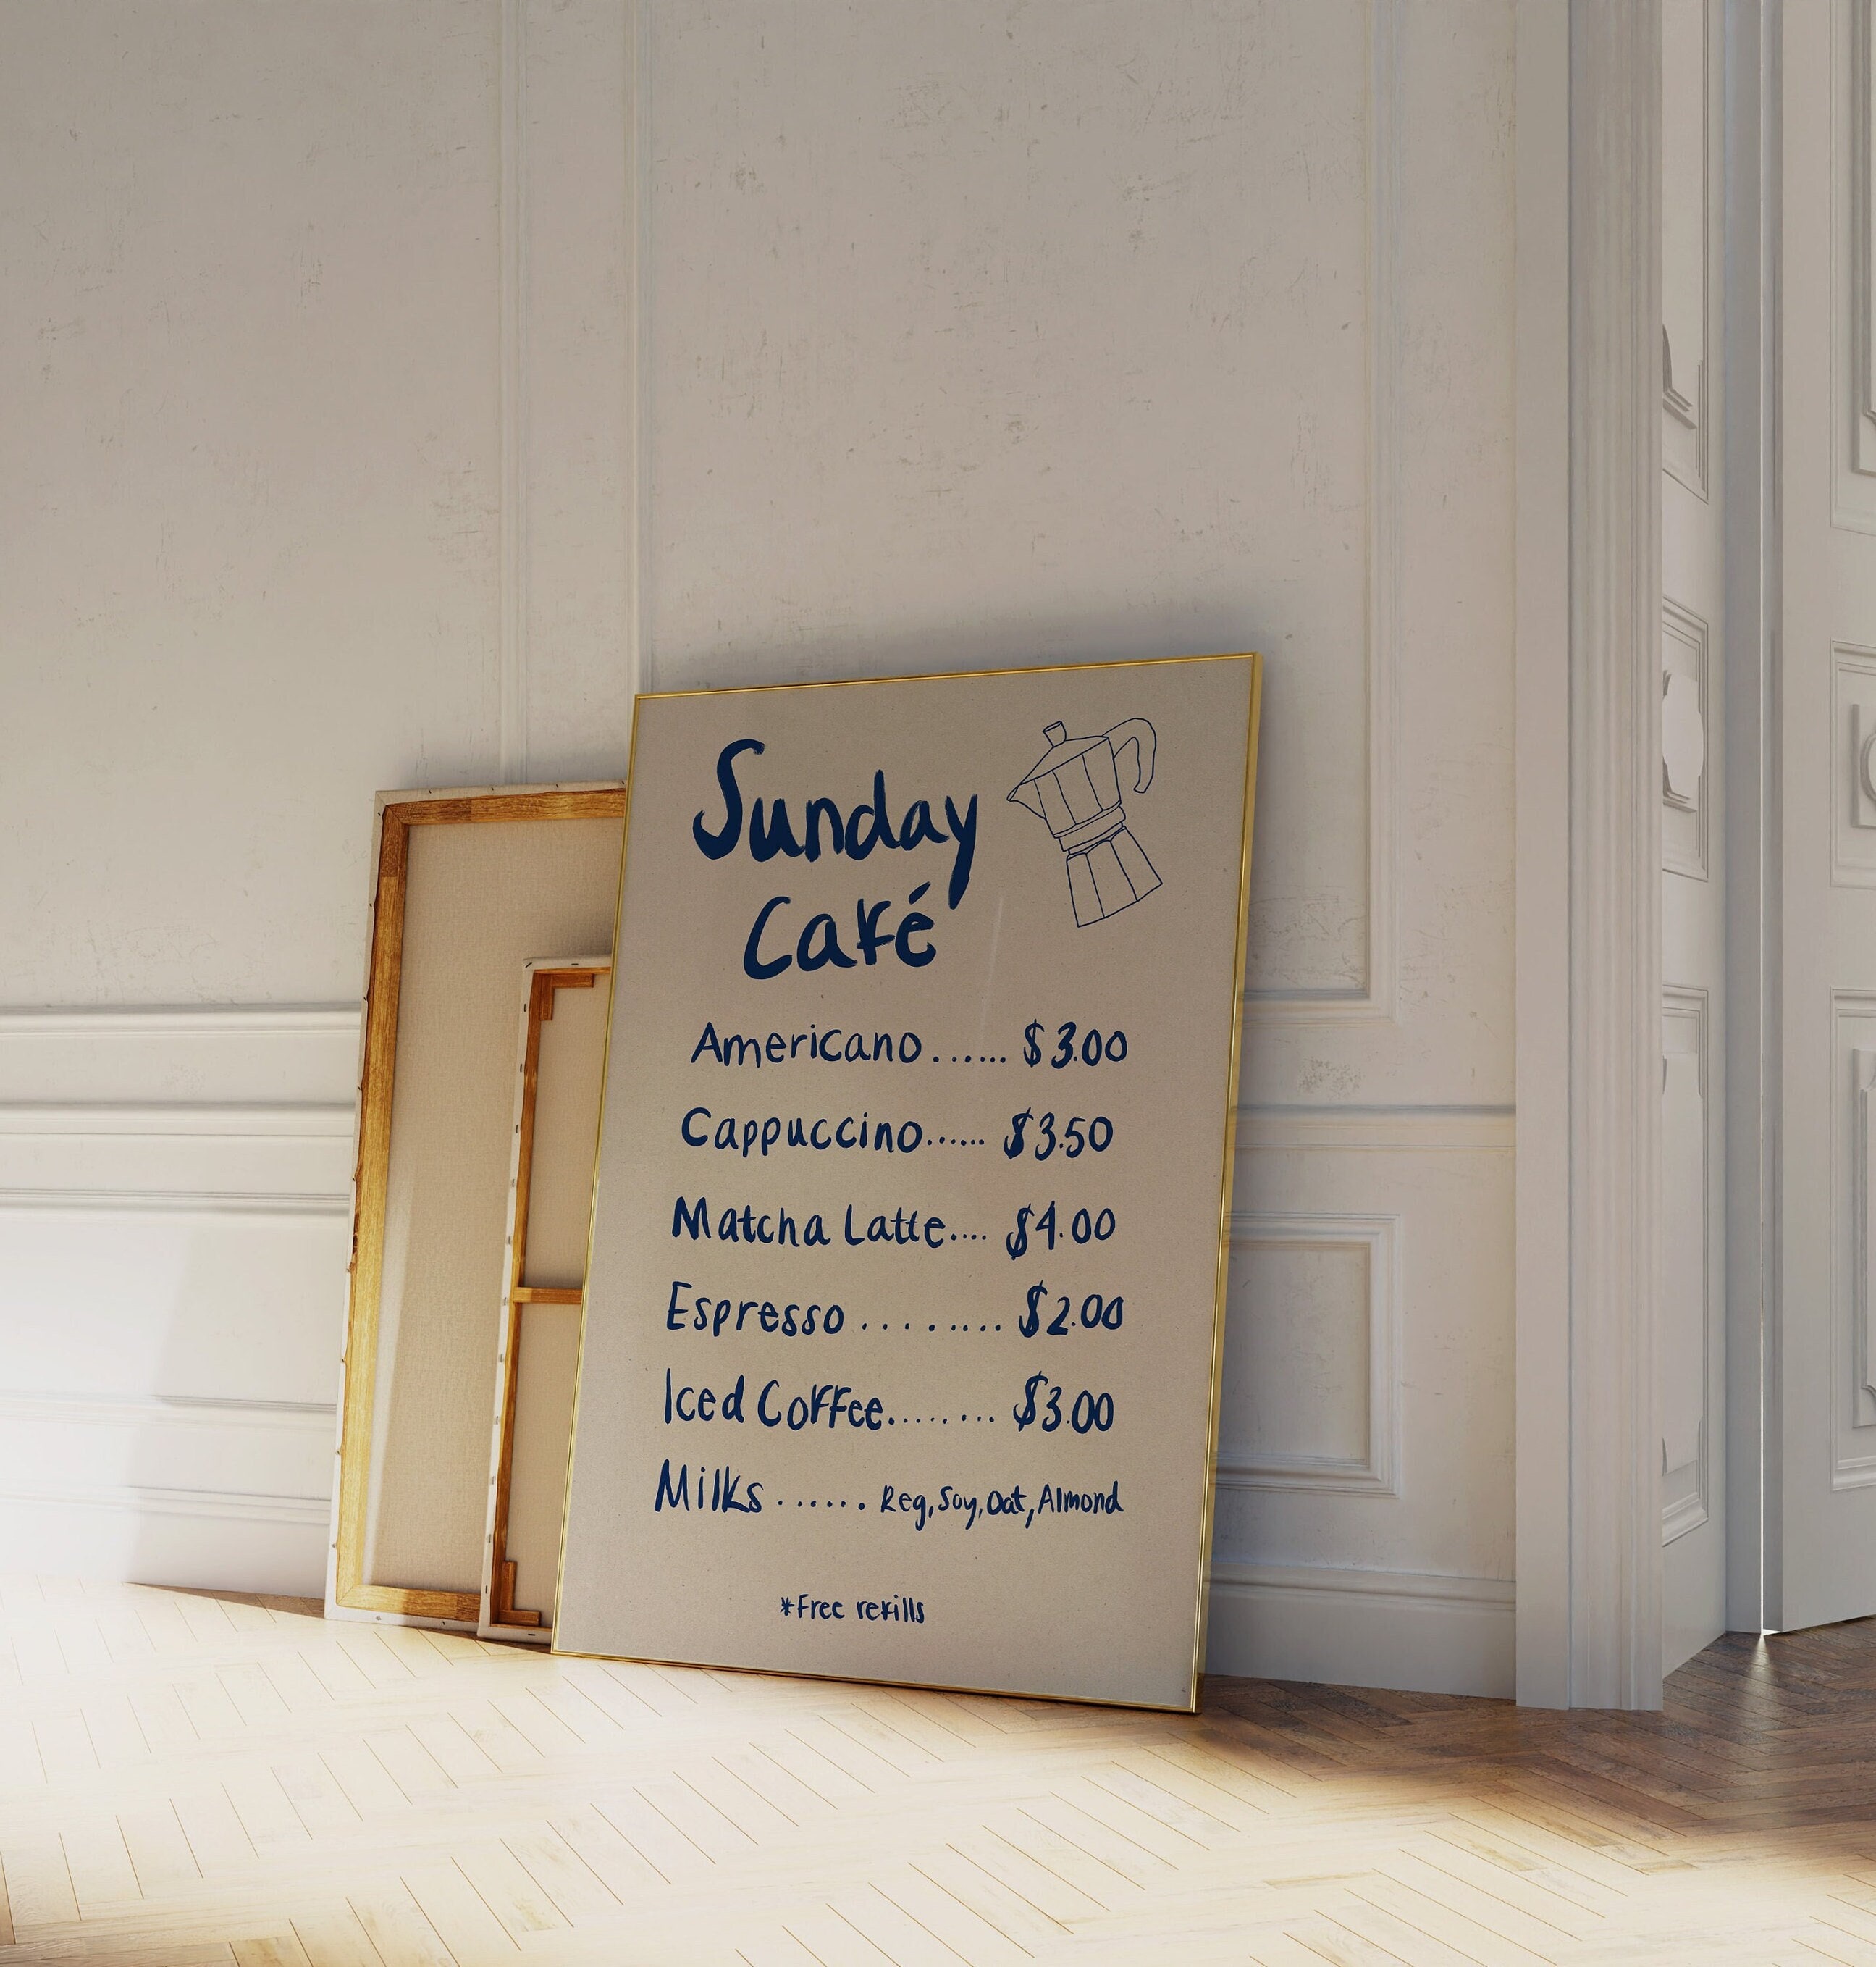 Sunday
Café
Americano ...... $3.00
Cappuccino...... $3.50
Matcha Latte.... $4.00
Espresso ........ $2.00
Iced Coffee........ $3.00
Milks ...... Reg, Soy, Oat, Almond
*Free refills